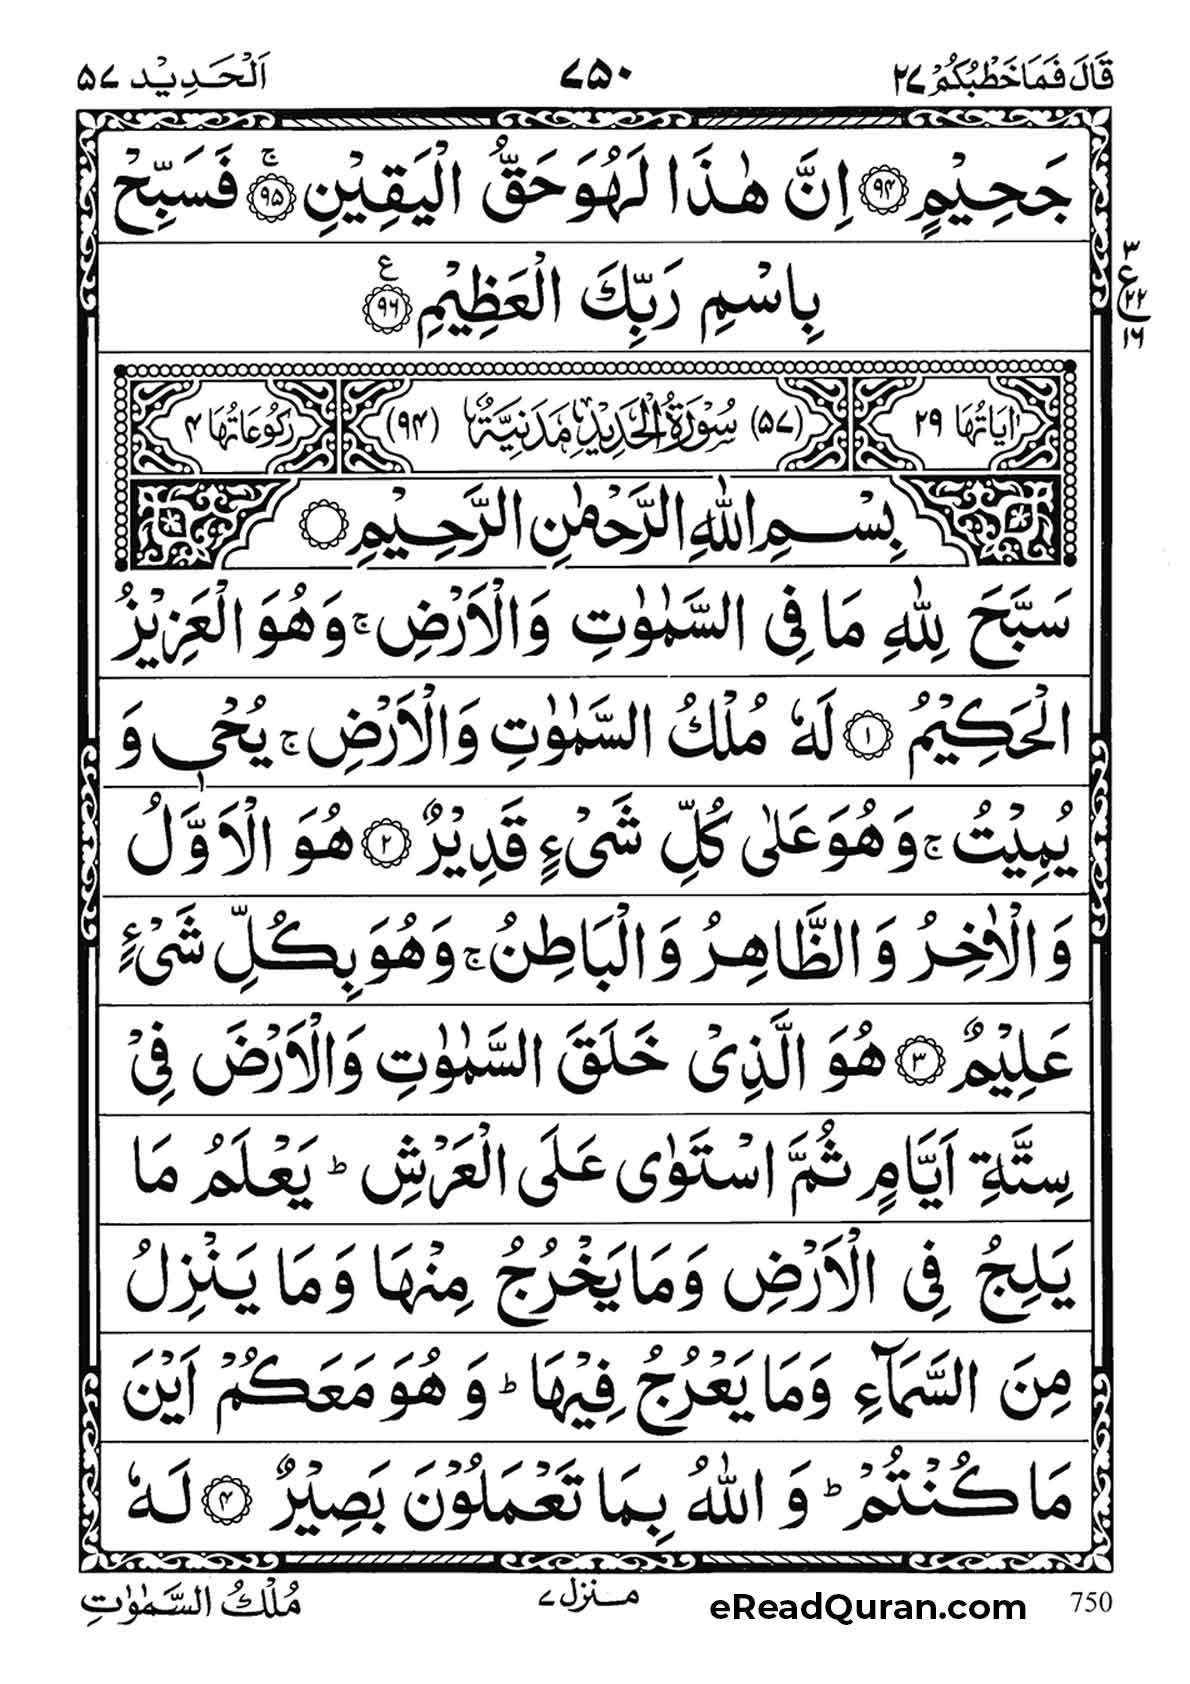 قَالَ فَمَا خَطْبُكُمْ ٢٧ ٧٥٠ اَلْحَدِيْد ٥٧
جَحِيْمٍ ﴿٩٤﴾ اِنَّ هٰذَا لَهُوَ حَقُّ الْيَقِيْنِ ﴿٩٥﴾ ۚ فَسَبِّحْ
بِاسْمِ رَبِّكَ الْعَظِيْمِ ﴿٩٦﴾ ع
٣
ع
٢٢
١٦
اٰيَاتُهَا ٢٩ (٥٧) سُوْرَةُ الْحَدِيْدِ مَدَنِيَّةٌ (٩٤) رُكُوْعَاتُهَا ٤
بِسْمِ اللّٰهِ الرَّحْمٰنِ الرَّحِيْمِ
سَبَّحَ لِلّٰهِ مَا فِي السَّمٰوٰتِ وَالْاَرْضِ ۚ وَهُوَ الْعَزِيْزُ
الْحَكِيْمُ ﴿١﴾ لَهٗ مُلْكُ السَّمٰوٰتِ وَالْاَرْضِ ۚ يُحْيٖ وَ
يُمِيْتُ ۚ وَهُوَ عَلٰى كُلِّ شَيْءٍ قَدِيْرٌ ﴿٢﴾ هُوَ الْاَوَّلُ
وَالْاٰخِرُ وَالظَّاهِرُ وَالْبَاطِنُ ۚ وَهُوَ بِكُلِّ شَيْءٍ
عَلِيْمٌ ﴿٣﴾ هُوَ الَّذِيْ خَلَقَ السَّمٰوٰتِ وَالْاَرْضَ فِيْ
سِتَّةِ اَيَّامٍ ثُمَّ اسْتَوٰى عَلَى الْعَرْشِ ؕ يَعْلَمُ مَا
يَلِجُ فِي الْاَرْضِ وَمَا يَخْرُجُ مِنْهَا وَمَا يَنْزِلُ
مِنَ السَّمَآءِ وَمَا يَعْرُجُ فِيْهَا ؕ وَهُوَ مَعَكُمْ اَيْنَ
مَا كُنْتُمْ ؕ وَ اللّٰهُ بِمَا تَعْمَلُوْنَ بَصِيْرٌ ﴿٤﴾ لَهٗ
750 eReadQuran.com منزل ٧ مُلْكُ السَّمٰوٰتِ